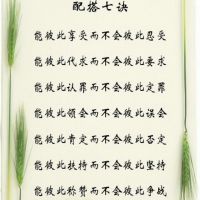 配搭七诀
能彼此享受而不会彼此忍受
能彼此代求而不会彼此要求
能彼此认罪而不会彼此定罪
能彼此领会而不会彼此误会
能彼此肯定而不会彼此否定
能彼此扶持而不会彼此坚持
能彼此称赞而不会彼此争战